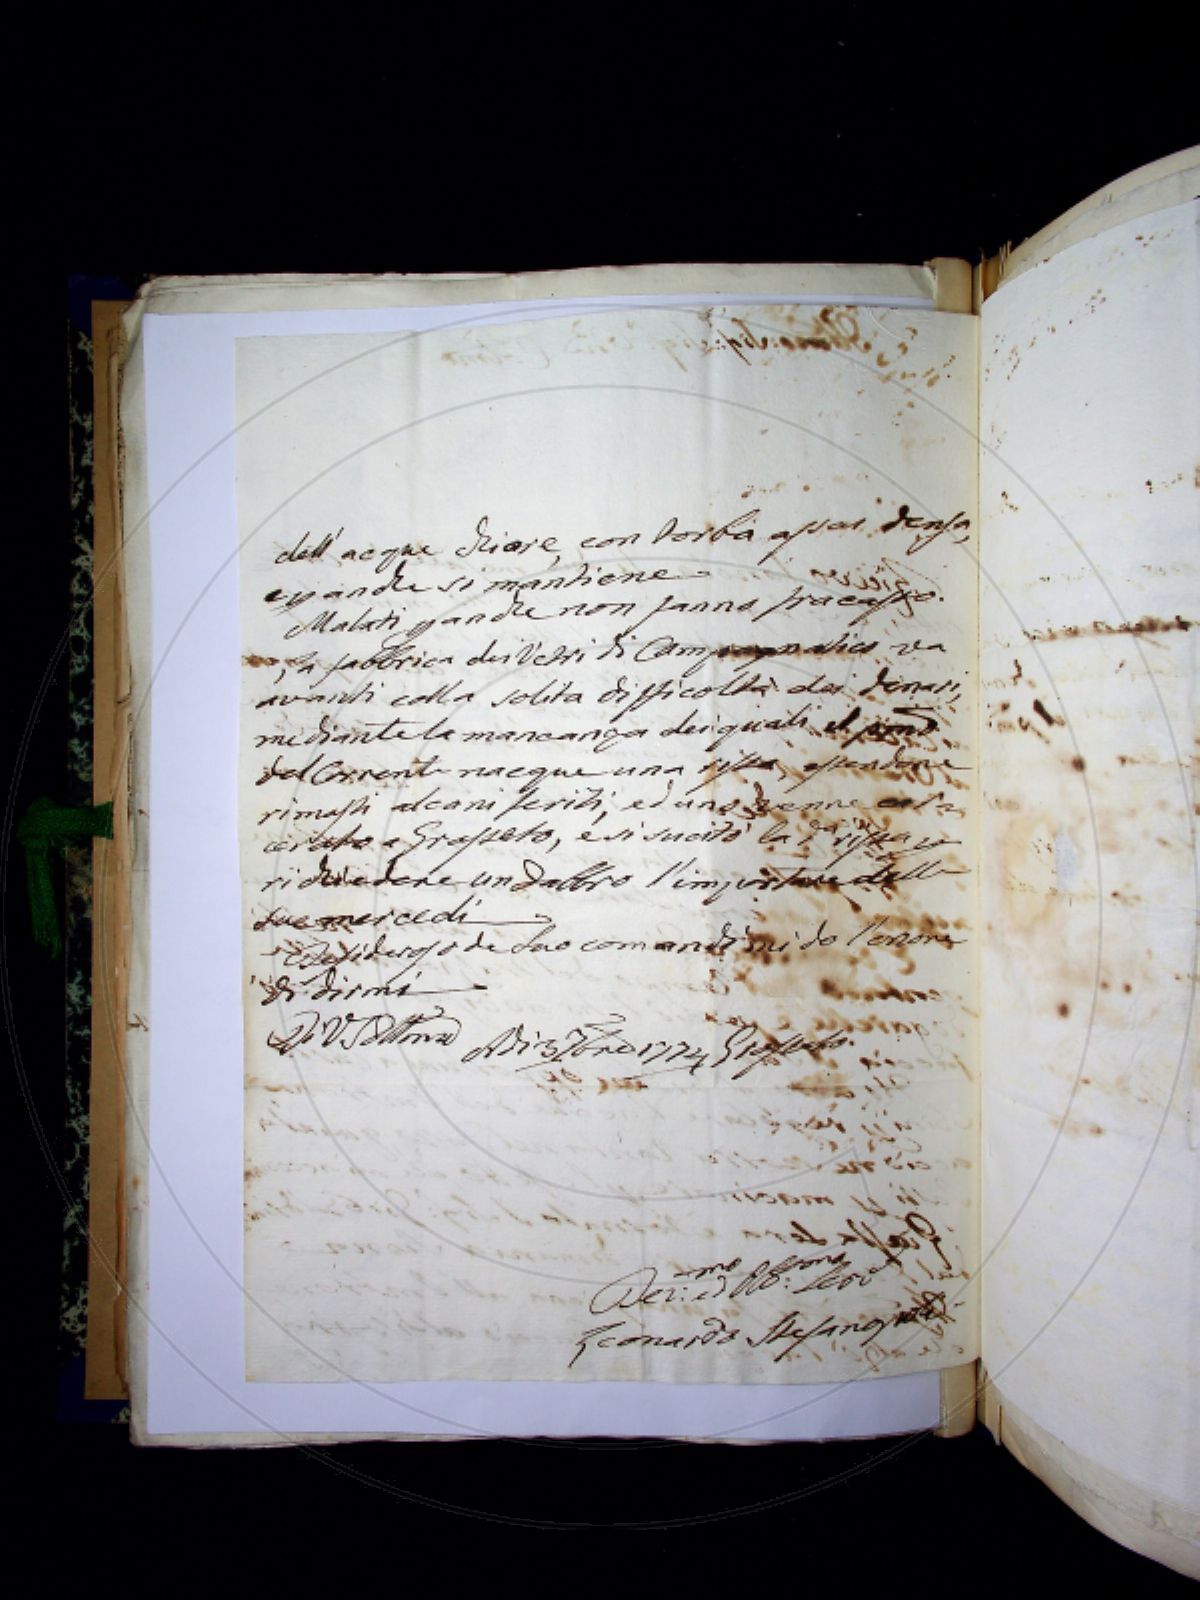 dell'acque chiare, con torba assai densa,
e p anche si mantiene
Malati p anche non fanno fracasso.
La fabbrica dei Vetri di Campagnatico va
avanti colla solita difficoltà dei denari,
mediante la mancanza dei quali il pmo
del Corrente nacque una rissa, essendone
rimasti alcuni feriti, ed uno venne car
cerato a Grosseto, e si sucitò la da rissa p
richiedere un dabbro l'importare delle
sue mercedi
Desideroso de Suo comandi mi do l'onore
di dirmi
Di V. S. Illma
Adi 3 7bre 1774 Grosseto.
Dev:mo ed Obb:mo Serv
Leonardo Stefanopoli